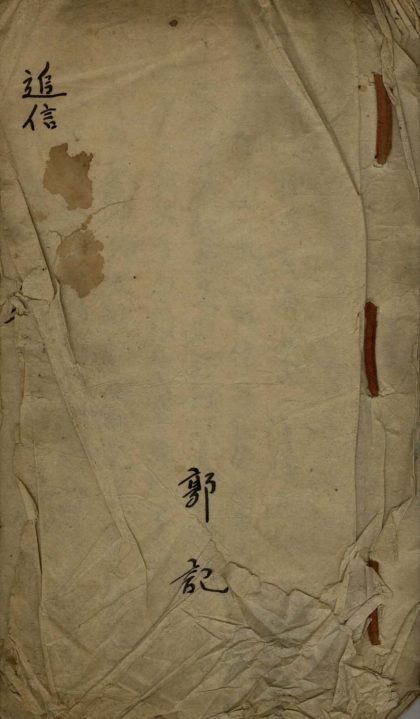 追信
郭記